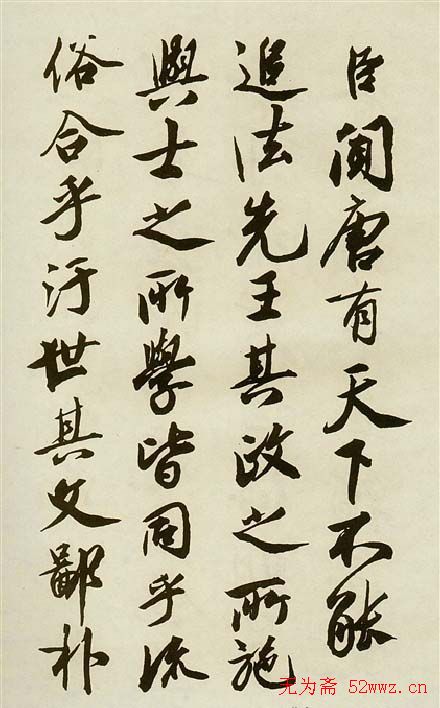 臣聞唐有天下不能
追法先王其政之所施
與士之所學皆同乎流
俗合乎汙世其文鄙朴
无为斋 52wwz.cn